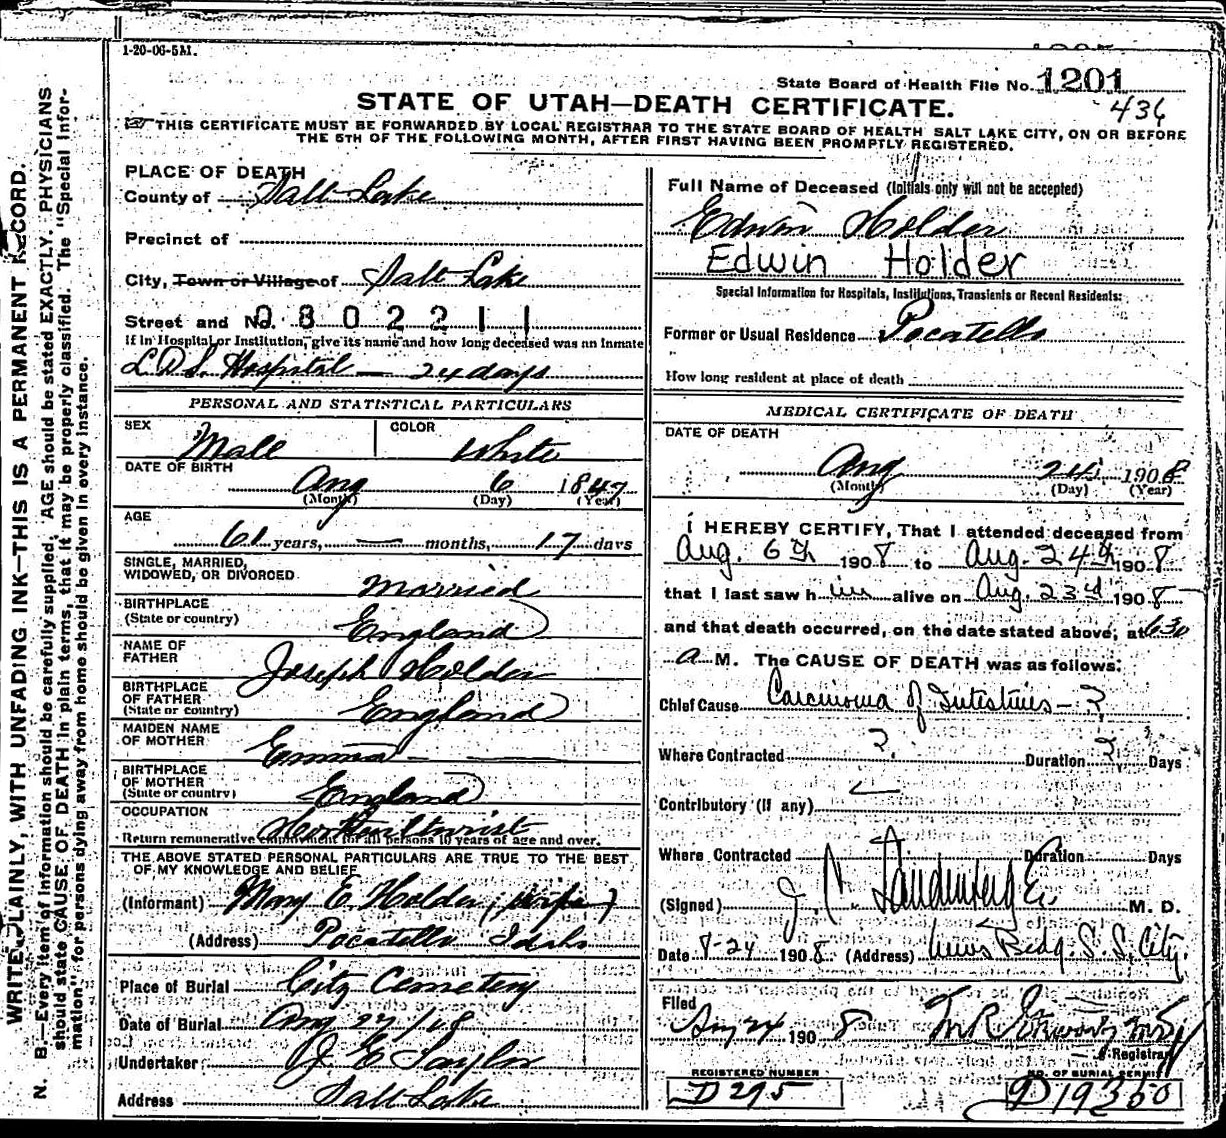 1-20-06-5M.
State Board of Health File No. 1201
436
STATE OF UTAH—DEATH CERTIFICATE.
THIS CERTIFICATE MUST BE FORWARDED BY LOCAL REGISTRAR TO THE STATE BOARD OF HEALTH SALT LAKE CITY, ON OR BEFORE
THE 5TH OF THE FOLLOWING MONTH, AFTER FIRST HAVING BEEN PROMPTLY REGISTERED.
WRITE PLAINLY, WITH UNFADING INK—THIS IS A PERMANENT RECORD.
N. B.—Every item of information should be carefully supplied. AGE should be stated EXACTLY. PHYSICIANS
should state CAUSE OF DEATH in plain terms, that it may be properly classified. The "Special Infor-
mation" for persons dying away from home should be given in every instance.
PLACE OF DEATH
County of Salt Lake
Precinct of
City, Town or Village of Salt Lake
Street and No. 0802211
If in Hospital or Institution, give its name and how long deceased was an Inmate
L.D.S. Hospital — 24 days
PERSONAL AND STATISTICAL PARTICULARS
SEX Male COLOR White
DATE OF BIRTH
Aug 6 1847
(Month) (Day) (Year)
AGE
61 years, — months, 17 days
SINGLE, MARRIED,
WIDOWED, OR DIVORCED Married
BIRTHPLACE
(State or country) England
NAME OF
FATHER Joseph Holder
BIRTHPLACE
OF FATHER
(State or country) England
MAIDEN NAME
OF MOTHER Emma — —
BIRTHPLACE
OF MOTHER
(State or country) England
OCCUPATION Horticulturist
Return remunerative employment for all persons 10 years of age and over.
THE ABOVE STATED PERSONAL PARTICULARS ARE TRUE TO THE BEST
OF MY KNOWLEDGE AND BELIEF
(Informant) Mary E. Holder (wife)
(Address) Pocatello Idaho
Place of Burial City Cemetery
Date of Burial Aug 27/08
Undertaker J E Taylor
Address Salt Lake
Full Name of Deceased (Initials only will not be accepted)
Edwin Holder
Edwin Holder
Special Information for Hospitals, Institutions, Transients or Recent Residents:
Former or Usual Residence Pocatello
How long resident at place of death
MEDICAL CERTIFICATE OF DEATH
DATE OF DEATH
Aug 24 1908
(Month) (Day) (Year)
I HEREBY CERTIFY, That I attended deceased from
Aug. 6th 1908 to Aug. 24th 1908
that I last saw him alive on Aug. 23d 1908
and that death occurred, on the date stated above, at 630
a M. The CAUSE OF DEATH was as follows:
Chief Cause Carcinoma of Intestines - ?
Where Contracted ? Duration ? Days
Contributory (If any)
Where Contracted Duration Days
(Signed) J. C. M. D.
Date 8-24 1908 (Address) News Bldg. S. L. City.
Filed
Aug 24 1908
Registrar
REGISTERED NUMBER
D 295
NO. OF BURIAL PERMIT
D 19350